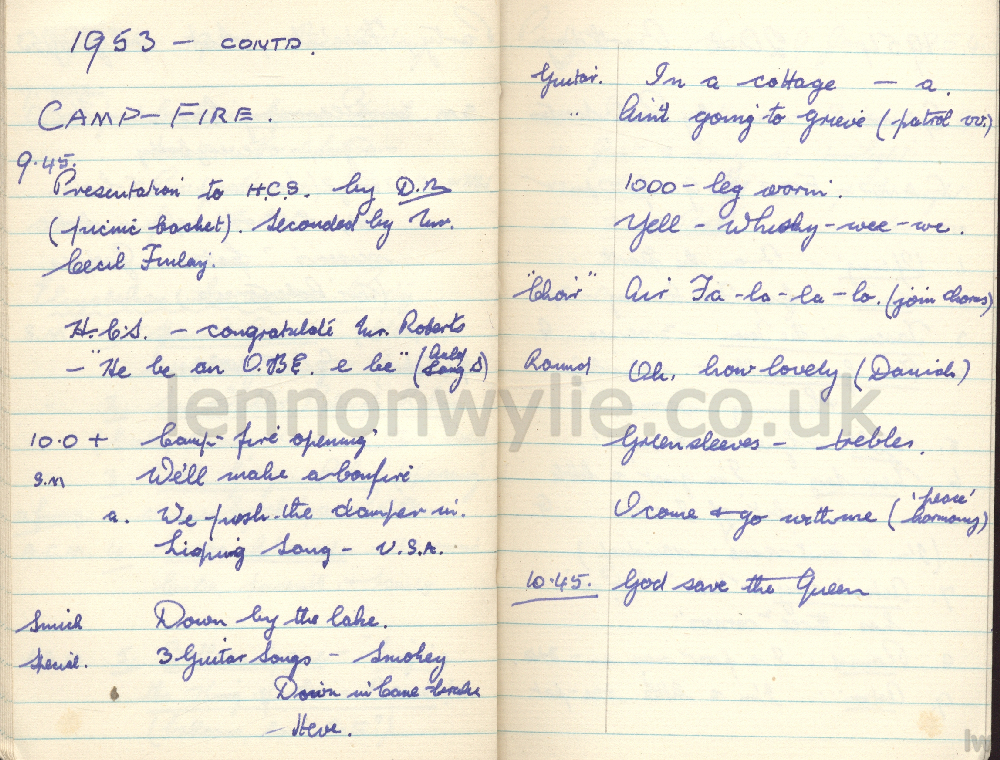 1953 - CONTD.
CAMP-FIRE.
9.45.
Presentation to H.C.S. by D.M
(picnic basket). Seconded by Mr.
Cecil Finlay.
H.C.S. - congratulate Mr. Roberts
- "He be an O.B.E. e be" (
Song S)
10.0 + Camp-fire opening
We'll make a bonfire
a. We push the damper in.
Song - U.S.A.
Down by the lake.
3 Guitar Songs - Smokey
Down in Cane-brake
- Steve.
Guitar. In a cottage - a.
" Ain't going to grieve (patrol vv.)
1000-leg worm.
Yell - Whisky-wee-we.
"Choir" Air Fa-la-la-la. (join chorus)
Round Oh, how lovely (Danish)
Greensleeves - trebles.
O come & go with me ('peace'
harmony)
10.45. God save the Queen
lennonwylie.co.uk
lw